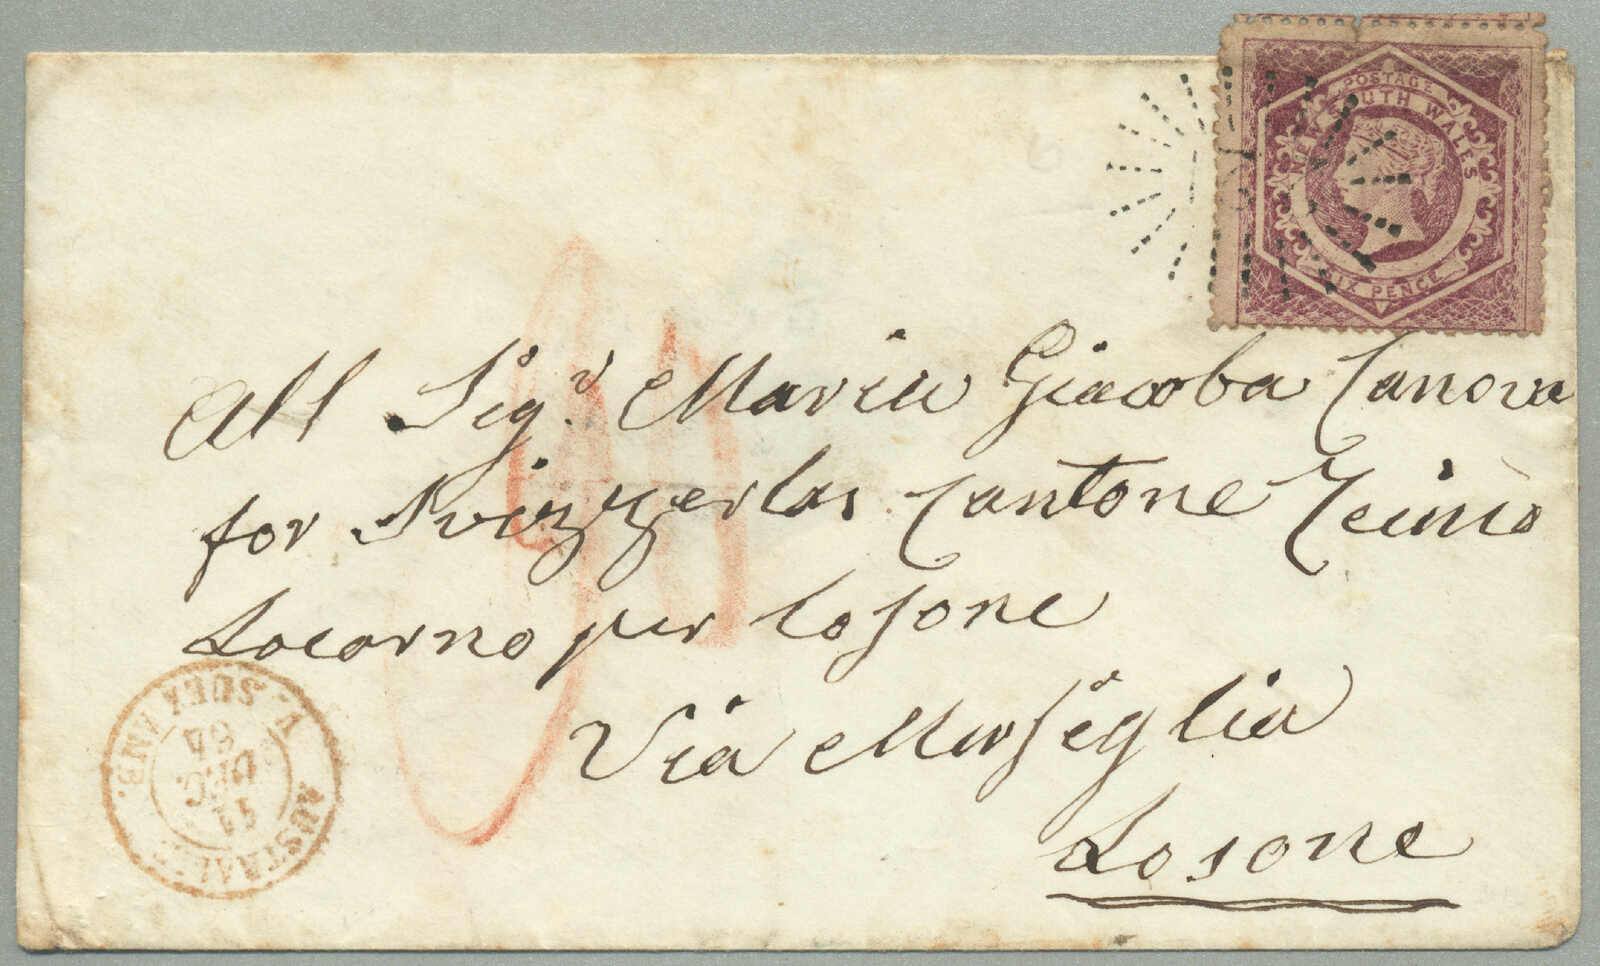 POSTAGE
NEW SOUTH WALES
SIX PENCE
All Sig.ra Maria Giacoba Canova
for Svizzerlas Cantone Ticino
Locarno per Losone
Via Marsiglia
Losone
AUSTRAL.
V. SUEZ AMB.
11
DEC.